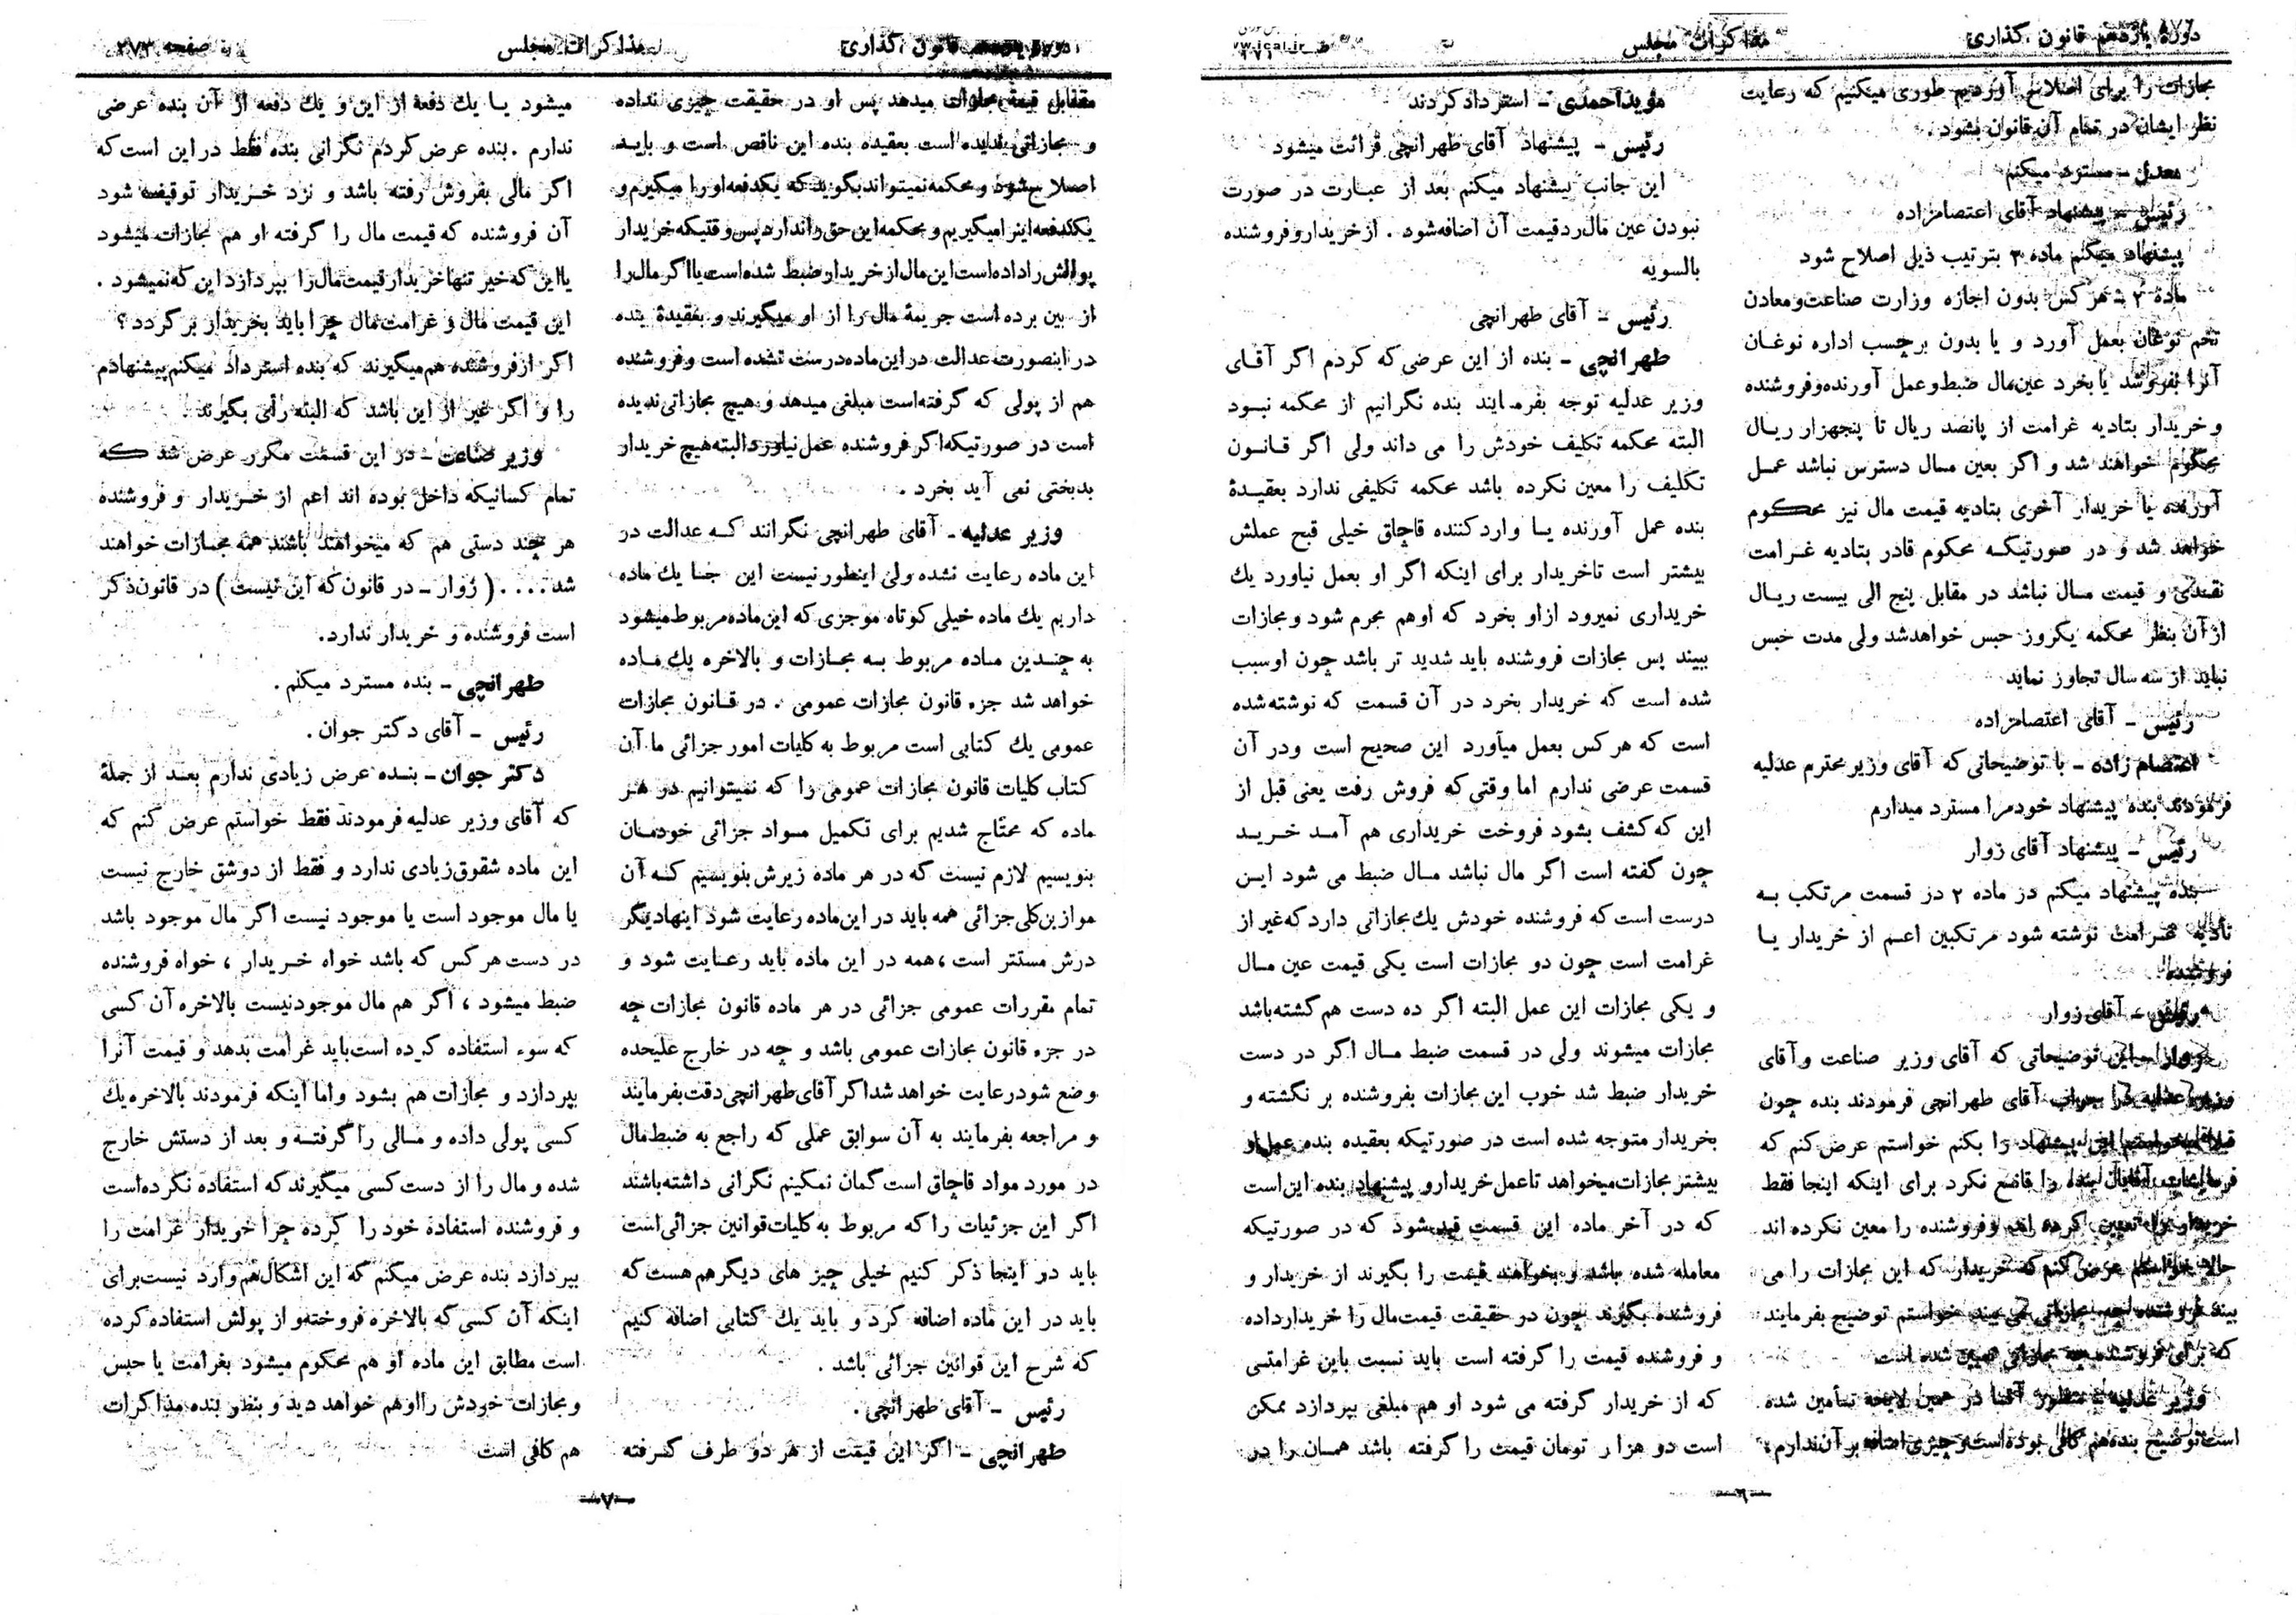 دورهٔ یازدهم قانون گذاری
مذاکرات مجلس
مجازات را برای اصلاح آوردیم طوری میکنیم که رعایت
نظر ایشان در تمام آن قانون بشود.
معدل ـ مسترد میکنم
رئیس ـ پیشنهاد آقای اعتصام‌زاده
پیشنهاد میکنم ماده ۲ بترتیب ذیل اصلاح شود
مادهٔ ۲ ـ هر کس بدون اجازه وزارت صناعت و معادن
تخم نوغان بعمل آورد و یا بدون برچسب اداره نوغـان
آنرا بفروشد یا بخرد عین‌مال ضبط و عمل آورنده و فروشنده
و خریدار بتادیه غرامت از پانصد ریال تا پنجهزار ریـال
محکوم خواهند شد و اگر بعین مـال دسترس نباشد عمـل
آورنده یا خریدار آخری بتادیه قیمت مال نیز محکـوم
خواهد شد و در صورتیکـه محکوم قادر بتادیه غـرامت
نقـدی و قیمت مـال نباشد در مقابل پنج الی بیست ریـال
از آن بنظر محکمه یکروز حبس خواهدشد ولی مدت حبس
نباید از سه سال تجاوز نماید
رئیس ـ آقای اعتصامزاده
اعتصام زاده ـ با توضیحاتی که آقای وزیر محترم عدلیه
فرمودند بنده پیشنهاد خودم را مسترد میدارم
رئیس ـ پیشنهاد آقای زوار
بنده پیشنهاد میکنم در ماده ۲ در قسمت مرتکب بـه
تادیه غـرامت نوشته شود مرتکبین اعـم از خریدار یـا
فروشنده
رئیس ـ آقای زوار
زوار ـ این توضیحاتی که آقای وزیر صناعت و آقای
وزیر عدلیه در جواب آقای طهرانچی فرمودند بنده چون
پیشنهاد را بکنم خواستم عرض کنم که
بنده را قانع نکرد برای اینکه اینجا فقط
خریدار را تعیین کرده اند و فروشنده را معین نکرده اند
حالا خواستم عرض کنم که خریدار که این مجازات را می
بیند فروشنده چه مجازاتی می بیند خواستم توضیح بفرمایند
که برای فروشنده چه مجازاتی معین شده است
وزیر عدلیه ـ منظور آقا در همین لایحه تـأمین شده
است توضیح بنده‌هم کافی بوده‌است و چیزی اضافه بر آن ندارم
مؤید احمدی ـ استرداد کردند
رئیس ـ پیشنهاد آقای طهرانچی قرائت میشود
این جانب پیشنهاد میکنم بعد از عبـارت در صورت
نبودن عین مال رد قیمت آن اضافه شود . از خریدار و فروشنده
بالسویه
رئیس ـ آقای طهرانچی
طهرانچی ـ بنده از این عرضی که کردم اگر آقـای
وزیر عدلیه توجه بفرمـایند بنده نگرانیم از محکمه نبـود
البته محکمه تکلیف خودش را می داند ولی اگر قـانـون
تکلیف را معین نکرده باشد محکمه تکلیفی ندارد بعقیـدهٔ
بنده عمل آورنده یـا وارد کننده قاچاق خیلی قبح عملش
بیشتر است تا خریدار برای اینکه اگر او بعمل نیاورد یك
خریداری نمیرود از او بخرد که او هم مجرم شود و مجازات
ببیند پس مجازات فروشنده باید شدید تر باشد چون او سبب
شده است که خریدار بخرد در آن قسمت که نوشته شده
است که هر کس بعمل میآورد این صحیح است و در آن
قسمت عرضی ندارم اما وقتی که فروش رفت یعنی قبل از
این که کشف بشود فروخت خریداری هم آمـد خـریـد
چون گفته است اگر مال نباشد مـال ضبط می شود ایـن
درست است که فروشنده خودش یك مجازاتی دارد که غیر از
غرامت است چون دو مجازات است یکی قیمت عین مـال
و یکی مجازات این عمل البته اگر ده دست هم گشته باشد
مجازات میشوند ولی در قسمت ضبط مـال اگر در دست
خریدار ضبط شد خوب این مجازات بفروشنده بر نگشته و
بخریدار متوجه شده است در صورتیکه بعقیده بنده عمل او
بیشتر مجازات میخواهد تا عمل خریدار و پیشنهاد بنده این است
که در آخر ماده این قسمت قید شود که در صورتیکه
معامله شده باشد و بخواهند قیمت را بگیرند از خریدار و
فروشنده بگیرند چون در حقیقت قیمت مال را خریدار داده
و فروشنده قیمت را گرفته است باید نسبت باین غرامتـی
که از خریدار گرفته می شود او هم مبلغی بپردازد ممکن
است دو هزار تومان قیمت را گرفته باشد همـان را در
ـ۶ـ
قانون گذاری
مذاکرات مجلس
صفحه ۲۷۳
مقابل قیمة مجازات میدهد پس او در حقیقت چیزی نداده
و مجازاتی ندیده است بعقیده بنده این ناقص است و بایـد
اصلاح بشود و محکمه نمیتواند بگوید که یکدفعه او را میگیرم و
یکدفعه اینرا میگیریم و محکمه این حق را ندارد پس وقتیکه خریدار
پولش را داده است این مال از خریدار ضبط شده است یا اگر مال را
از بین برده است جریمهٔ مال را از او میگیرند و بعقیدهٔ بنده
در اینصورت عدالت در این ماده درست نشده است و فروشنده
هم از پولی که گرفته است مبلغی میدهد و هیچ مجازاتی ندیده
است در صورتیکه اگر فروشنده عمل نیاورد البته هیچ خریدار
بدبختی نمی آید بخرد .
وزیر عدلیه ـ آقای طهرانچی نگرانند کـه عدالت در
این ماده رعایت نشده ولی اینطور نیست این جـا یك ماده
داریم یك ماده خیلی کوتاه موجزی که این ماده مربوط میشود
به چنـدین مـاده مربوط بـه مجـازات و بالاخره یك مـاده
خواهد شد جزء قانون مجازات عمومی . در قـانون مجازات
عمومی یك کتابی است مربوط به کلیات امور جزائی ما آن
کتاب کلیات قانون مجازات عمومی را که نمیتوانیم در هـر
ماده که محتاج شدیم برای تکمیل مـواد جزائی خودمـان
بنویسیم لازم نیست که در هر ماده زیرش بنویسیم کـه آن
موازین کلی جزائی همه باید در این ماده رعایت شود اینها دیگر
درش مستتر است ، همه در این ماده باید رعـایت شود و
تمام مقررات عمومی جزائی در هر ماده قانون مجازات چه
در جزء قانون مجازات عمومی باشد و چه در خارج علیحده
وضع شود رعایت خواهد شد اگر آقای طهرانچی دقت بفرمایند
و مراجعه بفرمایند به آن سوابق عملی که راجع به ضبط مال
در مورد مواد قاچاق است گمان نمیکنم نگرانی داشته باشند
اگر این جزئیات را که مربوط به کلیات قوانین جزائی است
باید در اینجا ذکر کنیم خیلی چیز های دیگر هم هست که
باید در این ماده اضافه کرد و باید یك کتابی اضافه کنیم
که شرح این قوانین جزائی باشد .
رئیس ـ آقای طهرانچی .
طهرانچی ـ اگر این قیمت از هر دو طرف گـرفته
میشود یـا یك دفعه از این و یك دفعه از آن بنده عرضی
ندارم . بنده عرض کردم نگرانی بنده فقط در این است که
اگر مالی بفروش رفته باشد و نزد خـریدار توقیف شود
آن فروشنده که قیمت مال را گرفته او هم مجازات میشود
یا این که خیر تنها خریدار قیمت مال را بپردازد این که نمیشود .
این قیمت مال و غرامت مال چرا باید بخریدار بر گردد ؟
اگر از فروشنده هم میگیرند که بنده استرداد میکنم پیشنهادم
را و اگر غیر از این باشد که البته رأی بگیرند .
وزیر صناعت ـ در این قسمت مکرر عرض شد کـه
تمام کسانیکه داخل بوده اند اعم از خـریدار و فروشنده
هر چند دستی هم که میخواهند باشند همه مجـازات خواهند
شد . . . . ( زوار ـ در قانون که این نیست ) در قانون ذکر
است فروشنده و خریدار ندارد.
طهرانچی ـ بنده مسترد میکنم .
رئیس ـ آقای دکتر جوان .
دکتر جوان ـ بنـده عرض زیادی ندارم بعـد از جملهٔ
که آقای وزیر عدلیه فرمودند فقط خواستم عرض کنم که
این ماده شقوق زیادی ندارد و فقط از دو شق خارج نیست
یا مال موجود است یا موجود نیست اگر مال موجود باشد
در دست هر کس که باشد خواه خـریدار ، خواه فروشنده
ضبط میشود ، اگر هم مال موجود نیست بالاخره آن کسی
که سوء استفاده کرده است باید غرامت بدهد و قیمت آنرا
بپردازد و مجازات هم بشود و اما اینکه فرمودند بالاخره یك
کسی پولی داده و مـالی را گرفتـه و بعد از دستش خارج
شده و مال را از دست کسی میگیرند که استفاده نکرده است
و فروشنده استفادهٔ خود را کرده چرا خریدار غرامت را
بپردازد بنده عرض میکنم که این اشکال هم وارد نیست برای
اینکه آن کسی که بالاخره فروخته و از پولش استفاده کرده
است مطابق این ماده او هم محکوم میشود بغرامت یا حبس
و مجازات خودش را او هم خواهد دید و بنظر بنده مذاکرات
هم کافی است
ـ۷ـ